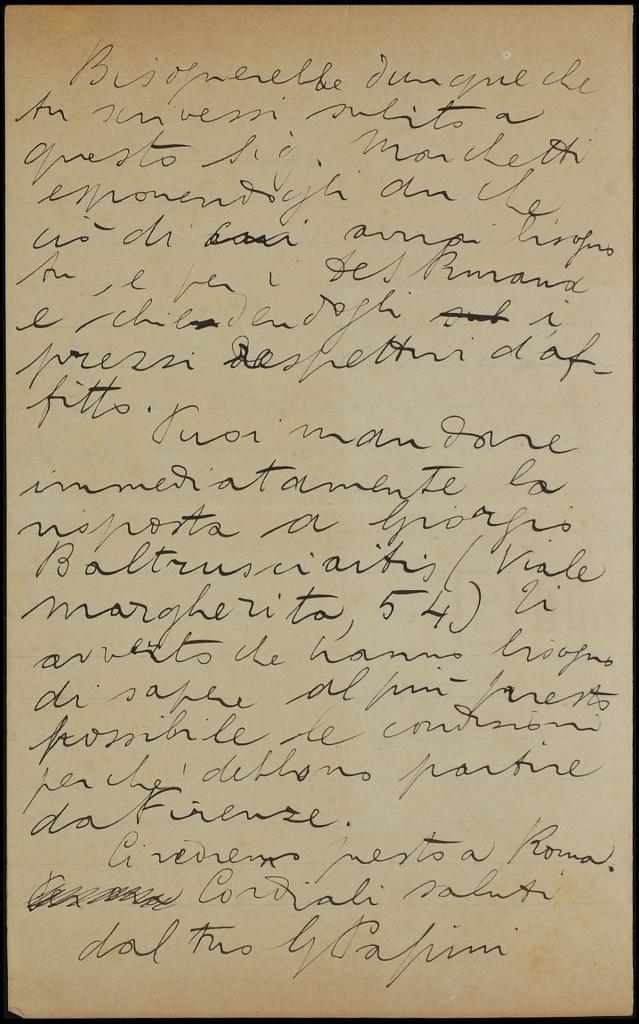 Bisognerebbe dunque che
tu scrivessi subito a
questo Sig. Marchetti
esponendogli anche
ciò di cui avrai bisogno
tu, e per i del
e chiedendogli i
prezzi respettivi d'af-
fitto.
Puoi mandare
immediatamente la
risposta a Giorgio
Baltrusciaitis (Viale
Margherita, 54) Ti
avverto che hanno bisogno
di sapere al più presto
possibile le condizioni
perché debbono partire
da Firenze.
Ci vedremo presto a Roma.
Cordiali saluti
dal tuo G Papini